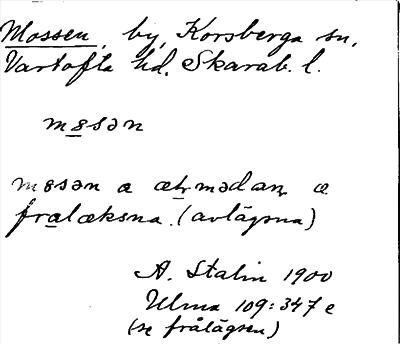 Mossen, by, Korsberga sn,
Vartofta hd, Skarab. l.
m8sən
m8sən æ æ mədan æ
fralæksna. (avlägsna)
A. Stalin 1900
Ulma 109:347 e
(se frålägsen)